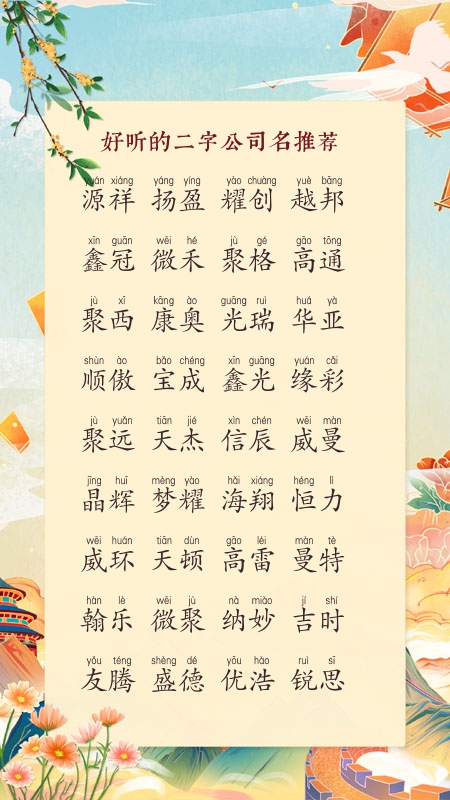 好听的二字公司名推荐
yuán xiáng yáng yíng yào chuàng yuè bāng
源祥 扬盈 耀创 越邦
xīn guān wēi hé jù gé gāo tōng
鑫冠 微禾 聚格 高通
jù xī kāng ào guāng ruì huá yà
聚西 康奥 光瑞 华亚
shùn ào bǎo chéng xīn guāng yuán cǎi
顺傲 宝成 鑫光 缘彩
jù yuǎn tiān jié xìn chén wēi màn
聚远 天杰 信辰 威曼
jīng huī mèng yào hǎi xiáng héng lì
晶辉 梦耀 海翔 恒力
wēi huán tiān dùn gāo léi màn tè
威环 天顿 高雷 曼特
hàn lè wēi jù nà miào jí shí
翰乐 微聚 纳妙 吉时
yǒu téng shèng dé yōu hào ruì sī
友腾 盛德 优浩 锐思